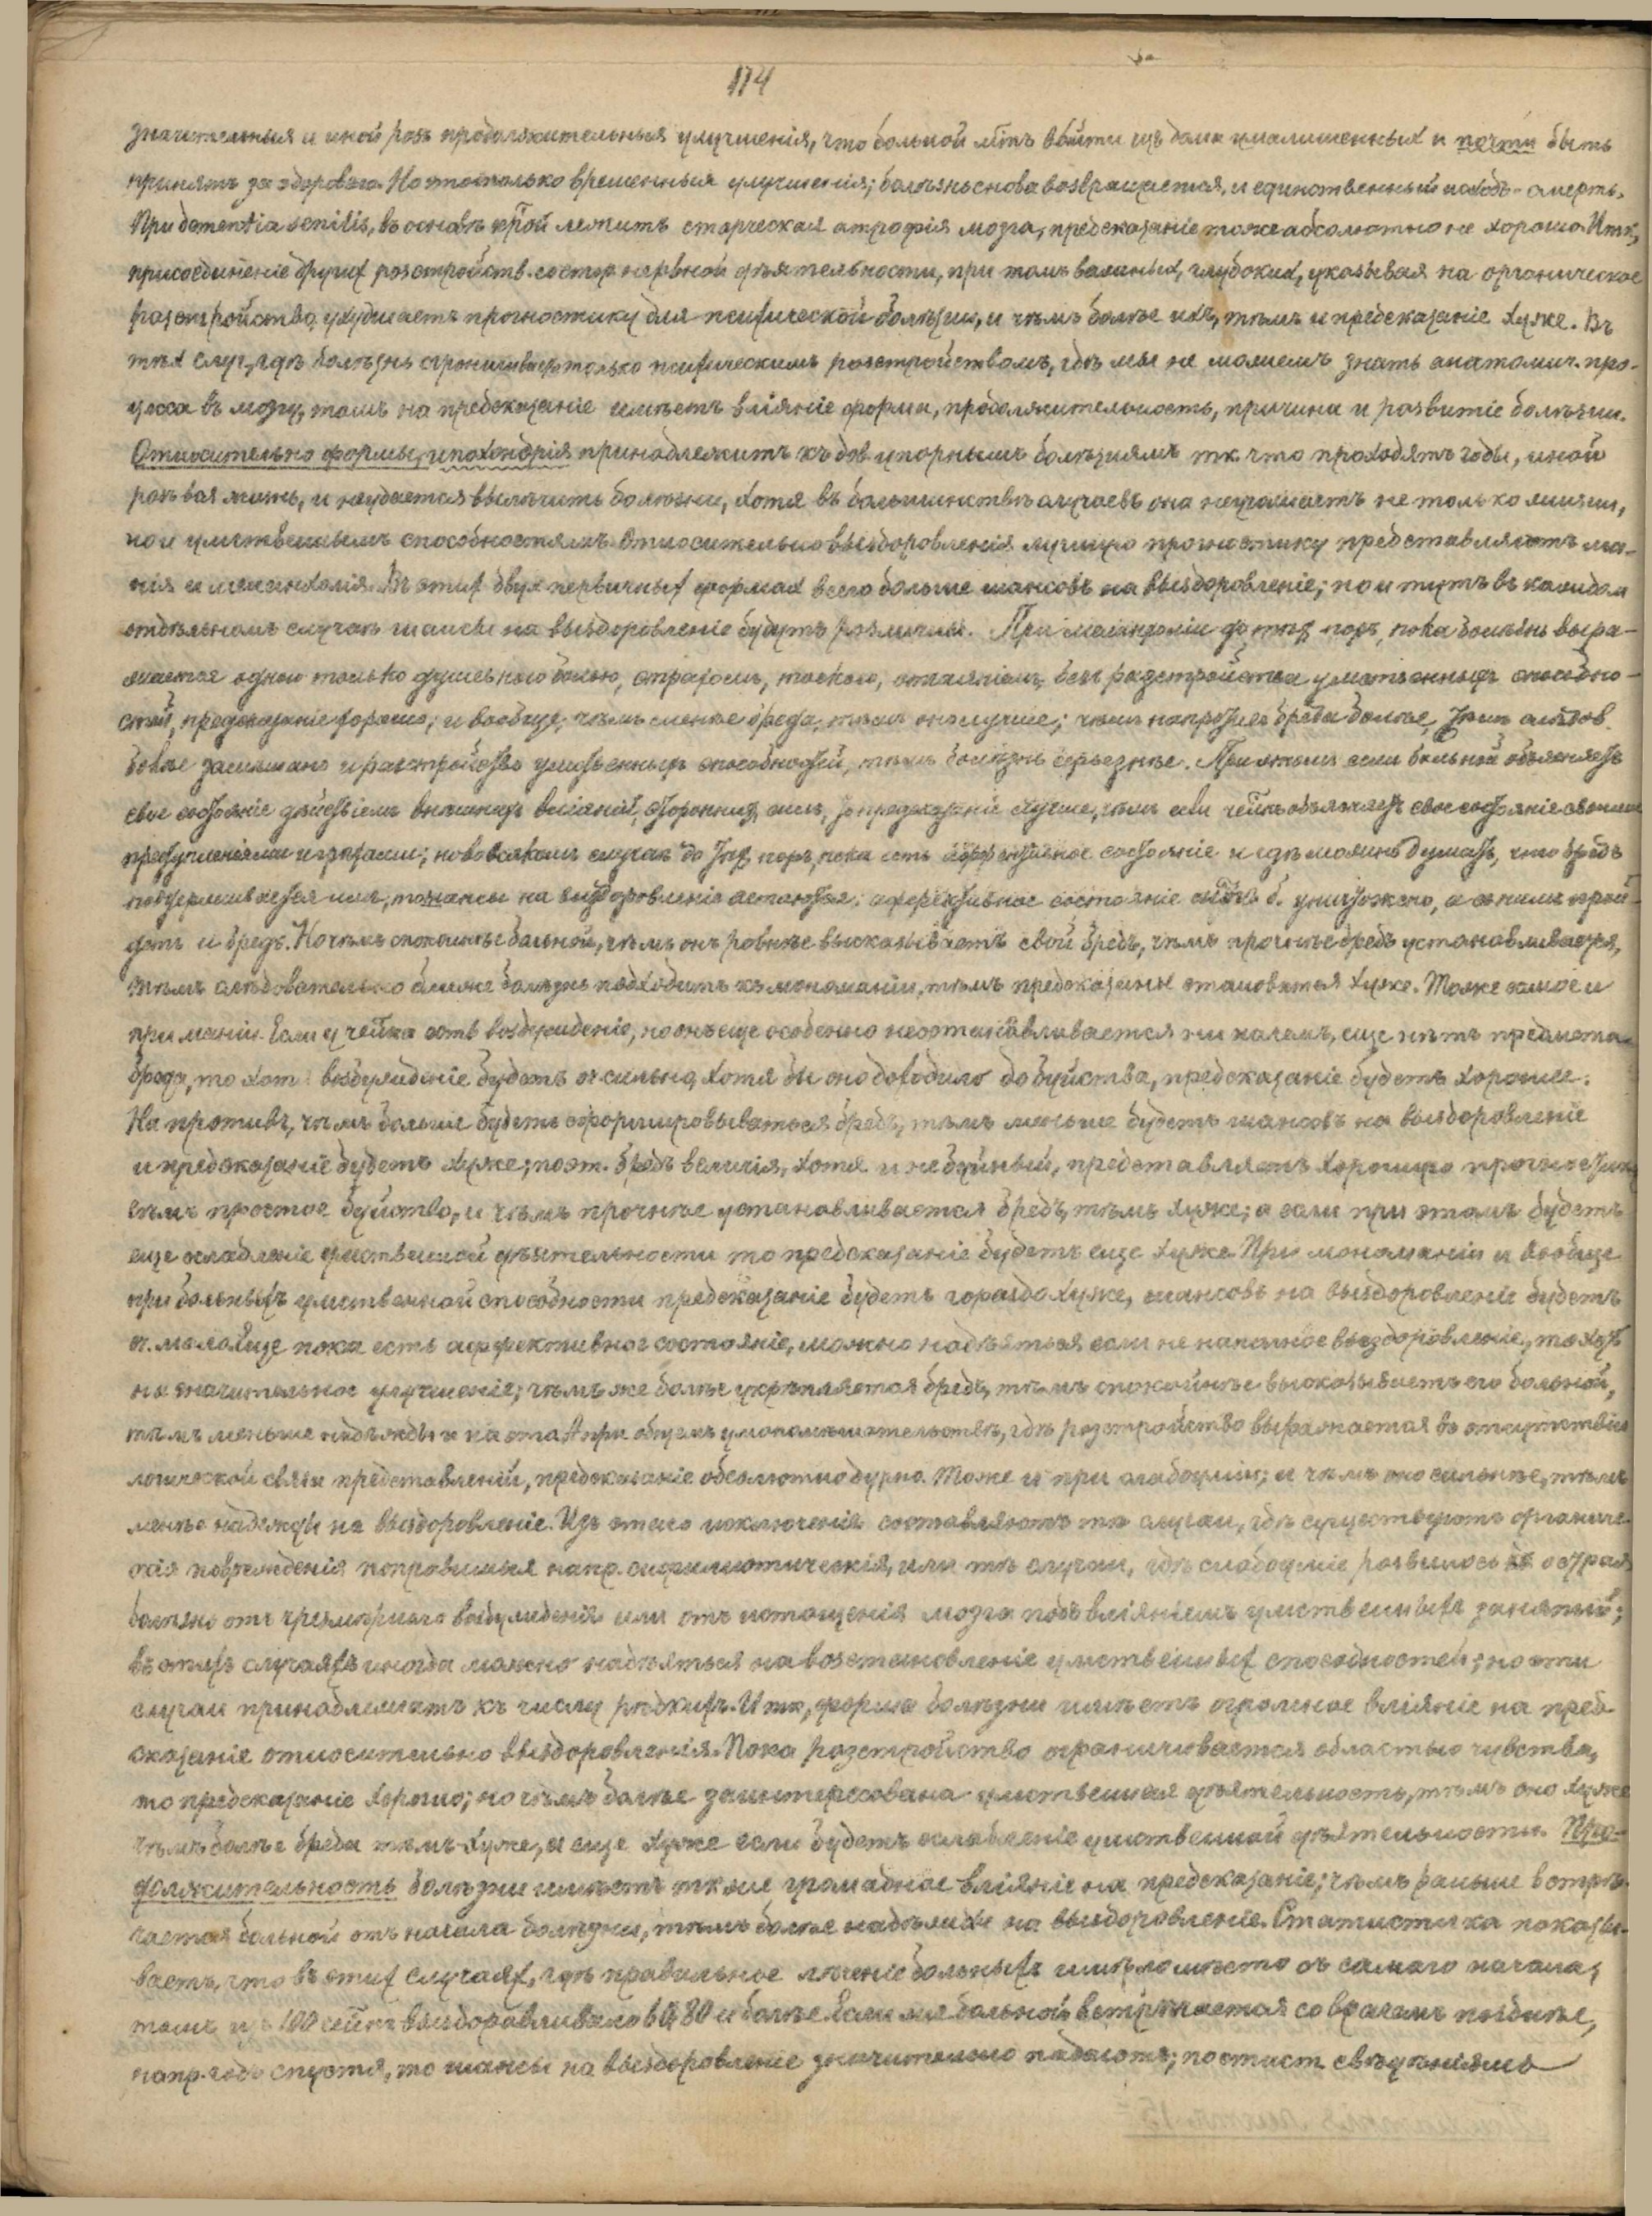 174
значительныя и иной разъ продолжительныя улучшенія, что больной м.бтъ выйти изъ дома умалишенныхъ и почти быть
принятъ за здороваго. Но это только временныя улучшенія; болѣзнь снова возвращается, и единственный исходъ - смерть.
При dementia senilis, въ основѣ кр̅ой лежитъ старческая атрофія мозга, предсказаніе тоже абсолютно не хорошо. Итк.,
присоединеніе других розстройств. со стор. нервной дѣятельности, при томъ важных, глубоких, указывая на органическое
разстройство, ухудшаетъ прогностику для психической болѣзни, и чѣмъ болѣе ихъ, тѣмъ и предсказаніе хуже. Въ
тѣх случ., гдѣ болѣзнь ограничивается только психическимъ розстройствомъ, гдѣ мы не можемъ знать анатомич. про-
цесса въ мозгу, тамъ на предсказаніе имѣетъ вліяніе форма, продолжительность, причина и развитіе болѣзни.
Относительно формы, ипохондрія принадлежитъ къ дов. упорнымъ болѣзнямъ тк. что проходятъ годы, иной
разъ вся жизнь, и не удается вылѣчить болѣзни, хотя въ большинствѣ случаевъ она не угрожаетъ не только жизни,
но и умственнымъ способностямъ. Относительно выздоровленія лучшую прогностику представляютъ ма-
нія и меланхолія. Въ этих двух первичных формах всего больше шансовъ на выздоровленіе; но и тутъ въ каждом
отдѣльномъ случаѣ шансы на выздоровленіе будутъ различны. При меланхоліи до тѣхъ поръ, пока болѣзнь выра-
жается одною только душевною болью, страхомъ, тоскою, отчаяніемъ, безъ разстройства умственныхъ способно-
стей, предсказаніе хорошо; и вообще, чѣмъ менѣе бреда, тѣмъ оно лучше; чѣмъ напротивъ бреда болѣе, чѣмъ слѣдов.
болѣе замѣшано и разстройство умственныхъ способностей, тѣмъ болѣзнь серьезнѣе. При этомъ если больной объясняетъ
свое состояніе дѣйствіемъ внѣшнихъ вліяній, стороннихъ силъ, то предсказаніе лучше, чѣмъ если че̅лкъ объясняетъ свое состояніе своими
преступленіями и грѣхами; но во всякомъ случаѣ до тѣхъ поръ, пока есть аффективное состояніе и гдѣ можно думать, что бредъ
поддерживается имъ, то шансы на выздоровленіе остаются; аффективное состояніе м. б. уничтожено, а съ нимъ прой-
детъ и бредъ. Но чѣмъ спокойнѣе больной, чѣмъ онъ ровнѣе высказываетъ свой бредъ, чѣмъ прочнѣе бредъ устанавливается,
тѣмъ слѣдовательно ближе болѣзнь подходитъ къ мономаніи, тѣмъ предсказанье становится хуже. Тоже самое и
при маніи. Если у че̅лка есть возбужденіе, но онъ еще особенно не останавливается ни на чемъ, еще нѣтъ предмета
бреда, то хотя возбужденіе будетъ оч. сильно, хотя бы оно доходило до буйства, предсказаніе будетъ хорошее.
Напротивъ, чѣмъ больше будетъ сформировываться бредъ, тѣмъ меньше будетъ шансовъ на выздоровленіе
и предсказаніе будетъ хуже; поэт. бредъ величія, хотя и не буйный, представляетъ худшую прогностику
чѣмъ простое буйство, и чѣмъ прочнѣе устанавливается бредъ, тѣмъ хуже; а если при этомъ будетъ
еще ослабленіе умственной дѣятельности то предсказаніе будетъ еще хуже. При мономаніи и вообще
при больныхъ умственной способности предсказаніе будетъ гораздо хуже, шансовъ на выздоровленіе будетъ
оч. мало. Еще пока есть аффективное состояніе, можно надѣяться если не на полное выздоровленіе, то хоть
на значительное улучшеніе; чѣмъ же болѣе укрѣпляется бредъ, тѣмъ спокойнѣе высказываетъ его больной,
тѣмъ меньше надежды и на это. А при общемъ умопомѣшательствѣ, гдѣ розстройство выражается въ отсутствіи
логической связи представленій, предсказаніе абсолютно дурно. Тоже и при слабоуміи; и чѣмъ оно сильнѣе, тѣмъ
менѣе надежды на выздоровленіе. Изъ этого исключенія составляютъ тѣ случаи, гдѣ существуютъ органиче-
скія поврежденія поправимыя напр. сифилитическія, или тѣ случаи, гдѣ слабоуміе развилось остраго
болѣзнь отъ чрезмѣрнаго возбужденія или отъ истощенія мозга подъ вліяніемъ умственныхъ занятій;
въ этихъ случаяхъ иногда можно надѣяться на возстановленіе умственных способностей; но эти
случаи принадлежатъ къ числу рѣдкихъ. И тк., форма болѣзни имѣетъ огромное вліяніе на пред-
сказаніе относительно выздоровленія. Пока розстройство ограничивается областью чувства,
то предсказаніе хорошо; но чѣмъ болѣе заинтересована умственная дѣятельность, тѣмъ оно хуже
чѣмъ болѣе бреда тѣмъ хуже, и еще хуже если будетъ ослабленіе умственной дѣятельности. Про-
должительность болѣзни имѣетъ ткже громадное вліяніе на предсказаніе; чѣмъ раньше встрѣ-
чается больной отъ начала болѣзни, тѣмъ болѣе надежды на выздоровленіе. Статистика показы-
ваетъ, что въ этих случаях, гдѣ правильное леченіе больныхъ имѣло мѣсто съ самаго начала,
тамъ изъ 100 че̅лкъ выздоравливало 60, 80 и болѣе. Если же больной встрѣчается со врачемъ позднѣе,
напр. годъ спустя, то шансы на выздоровленіе значительно падаютъ; по статист. свѣдѣніямъ